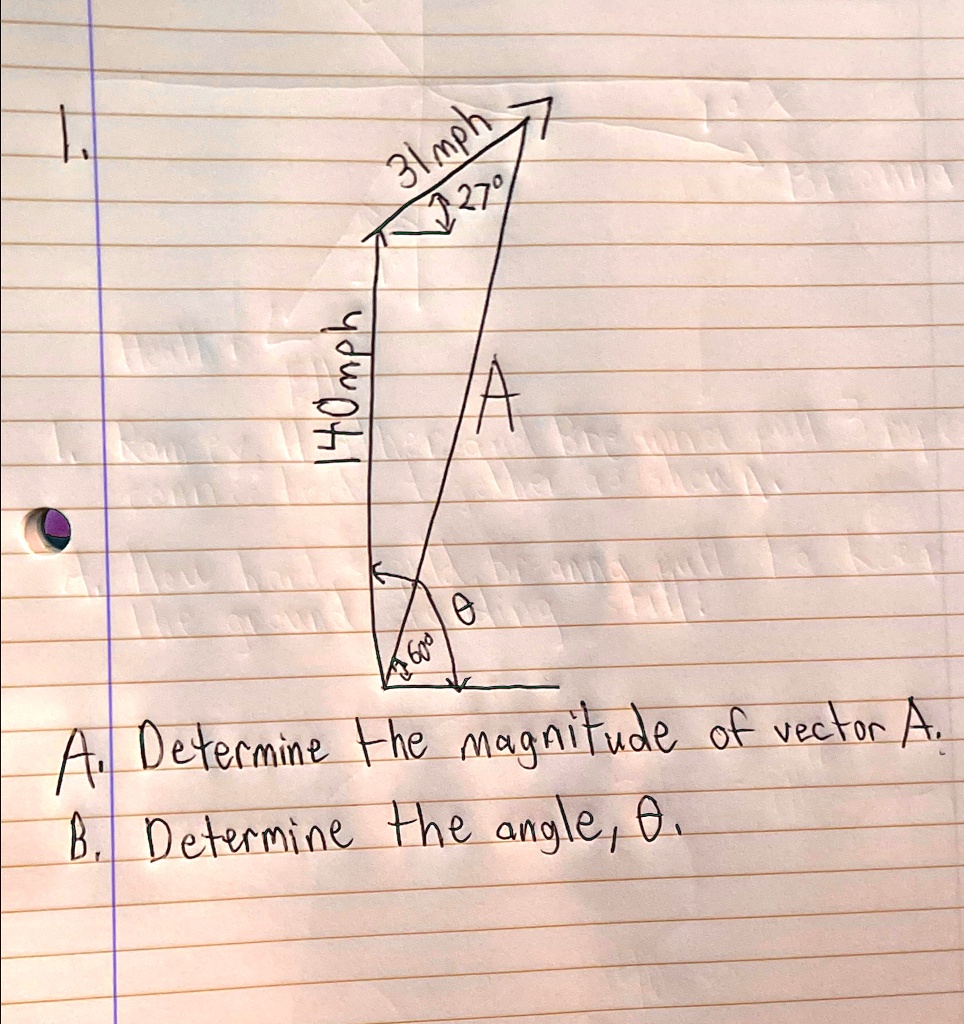 1.
31 mph
27°
140 mph
A
θ
60°
A. Determine the magnitude of vector A.
B. Determine the angle, θ.